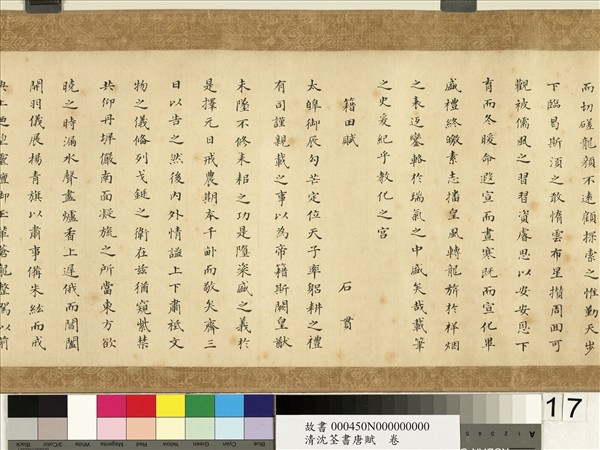 而切磋龍顏不遠顧探索之惟勤天步
下臨曷斯須之敢惰雲布星攢周回可
觀被儒風之習習資睿思以安安恩下
育而冬暖命遐宣而晝寒既而宣化畢
盛禮終暾素志播皇風轉龍旂於祥烟
之表迈鑾輅於瑞氣之中盛矣哉載筆
之史爰紀乎敎化之宫
籍田賦 石貫
太皥御辰勾芒定位天子率躬耕之禮
有司謹親載之事以為帝籍斯闢皇猷
未墜不修耒耜之功是隳粢盛之義於
是擇元日戒農期本千畝而敬矣齋三
日以告之然後內外情謐上下肅祗文
物之儀備列戈鋋之衛在茲猶窺紫禁
共仰丹墀儼南面凝旒之所當東方欲
曉之時漏水聲盡爐香上遲俄而閶闔
開羽儀展楊青旗以肅事備朱紘而戒
蒼龍整駕以前
17
故書 000450N000000000
清沈荃書唐賦 卷
Black
3/Color
White
Magenta
Red
Yellow
Green
Cyan
Blue